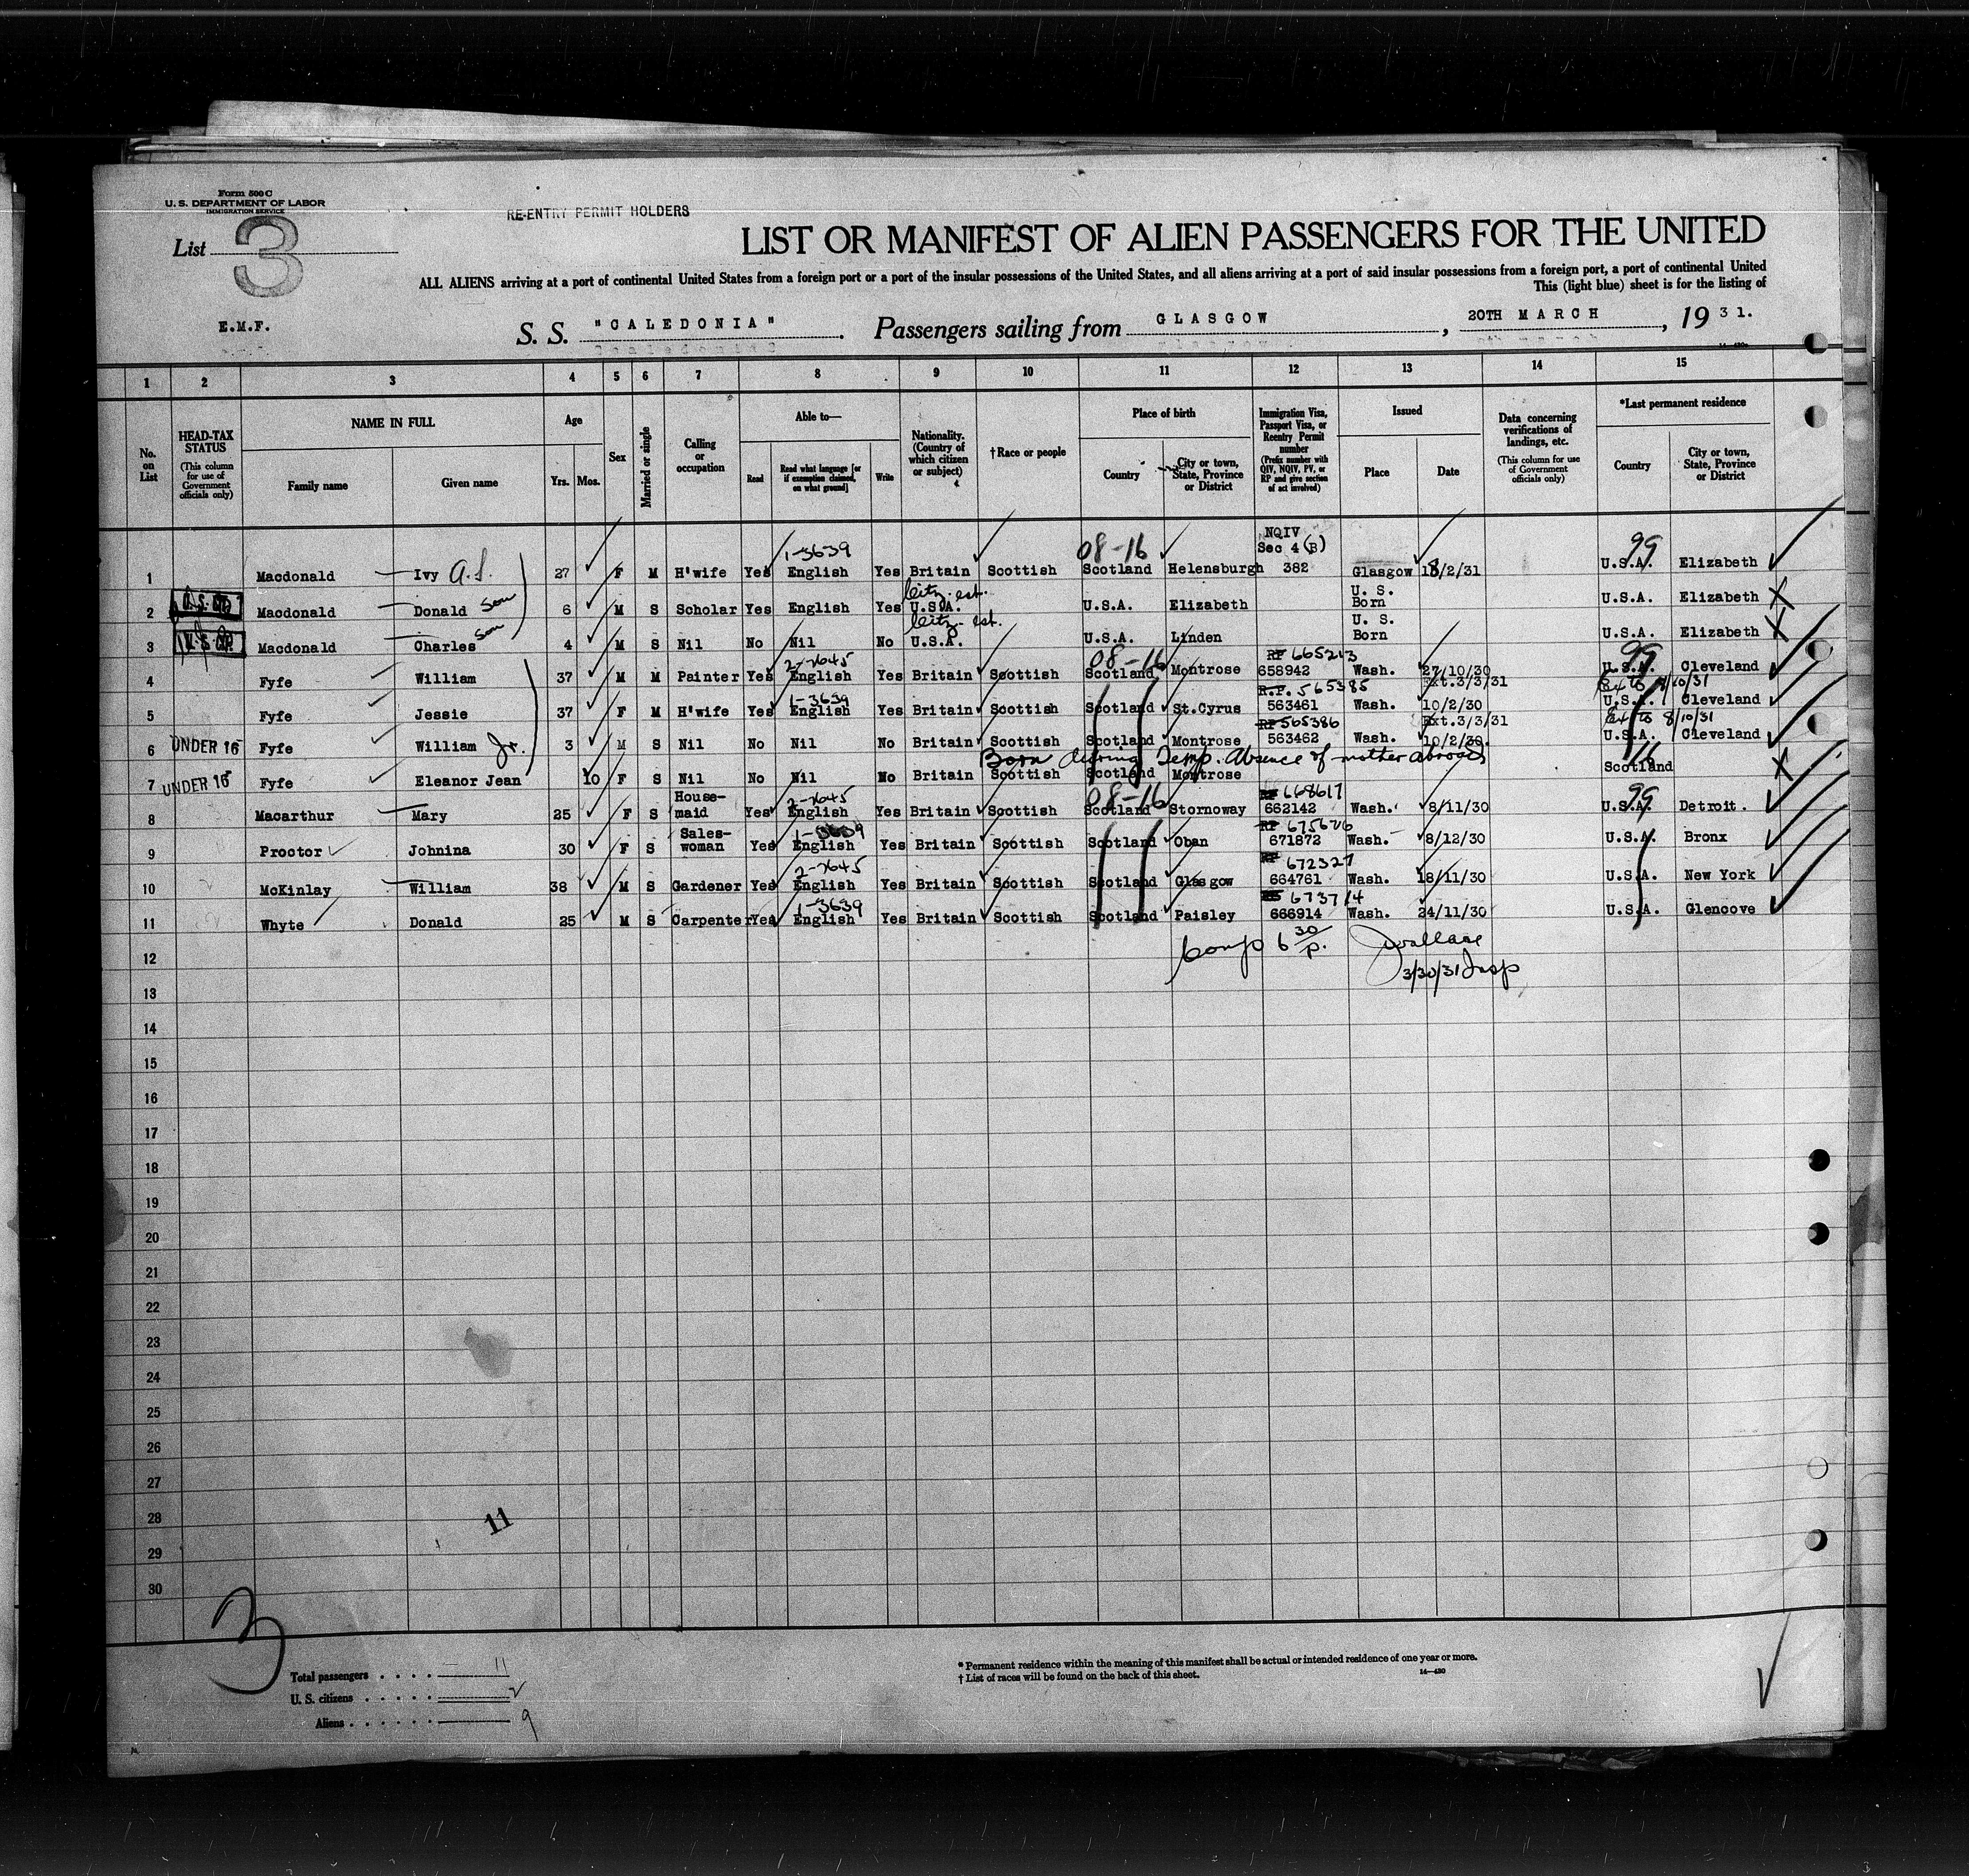 Form 500 C
U. S. DEPARTMENT OF LABOR
IMMIGRATION SERVICE
RE-ENTRY PERMIT HOLDERS
List 3
LIST OR MANIFEST OF ALIEN PASSENGERS FOR THE UNITED
ALL ALIENS arriving at a port of continental United States from a foreign port or a port of the insular possessions of the United States, and all aliens arriving at a port of said insular possessions from a foreign port, a port of continental United
This (light blue) sheet is for the listing of
E.M.F.
S. S. "CALEDONIA". Passengers sailing from GLASGOW, 20TH MARCH, 1931.
1 2 3 4 5 6 7 8 9 10 11 12 13 14 15
No. on List
HEAD-TAX STATUS (This column for use of Government officials only)
NAME IN FULL Family name Given name
Age Yrs. Mos.
Sex
Married or single
Calling or occupation
Able to— Read Read what language [or if exemption claimed, on what ground] Write
Nationality. (Country of which citizen or subject)
†Race or people
Place of birth Country City or town, State, Province or District
Immigration Visa, Passport Visa, or Reentry Permit number (Prefix number with QIV, NQIV, PV, or RP and give section of act involved)
Issued Place Date
Data concerning verifications of landings, etc. (This column for use of Government officials only)
*Last permanent residence Country City or town, State, Province or District
1-3639 08-16 NQIV Sec 4 (B) 99
1 Macdonald Ivy A.S. 27 F M H'wife Yes English Yes Britain Scottish Scotland Helensburgh 382 Glasgow 18/2/31 U.S.A. Elizabeth
Citz. est. U. S.
2 Macdonald Donald son 6 M S Scholar Yes English Yes U.S.A. U.S.A. Elizabeth Born U.S.A. Elizabeth
Citz. est. U. S.
3 Macdonald Charles son 4 M S Nil No Nil No U.S.A. U.S.A. Linden Born U.S.A. Elizabeth
2-7645 08-16 RP 665213 99
4 Fyfe William 37 M M Painter Yes English Yes Britain Scottish Scotland Montrose 658942 Wash. 27/10/30 U.S.A. Cleveland
1-3639 R.P. 565385 Ext.3/3/31 Ext to 8/10/31
5 Fyfe Jessie 37 F M H'wife Yes English Yes Britain Scottish Scotland St.Cyrus 563461 Wash. 10/2/30 U.S.A. Cleveland
RP 565386 Ext.3/3/31 Ext to 8/10/31
6 UNDER 16 Fyfe William Jr. 3 M S Nil No Nil No Britain Scottish Scotland Montrose 563462 Wash. 10/2/30. U.S.A. Cleveland
Born during Temp. Absence of mother abroad 16
7 UNDER 16 Fyfe Eleanor Jean 10 F S Nil No Nil No Britain Scottish Scotland Montrose Scotland
2-7645 08-16 RP 668617 99
8 Macarthur Mary 25 F S House-maid Yes English Yes Britain Scottish Scotland Stornoway 662142 Wash. 8/11/30 U.S.A. Detroit.
1-3639 RP 675676
9 Proctor Johnina 30 F S Sales-woman Yes English Yes Britain Scottish Scotland Oban 671872 Wash. 8/12/30 U.S.A. Bronx
2-7645 RP 672327
10 McKinlay William 38 M S Gardener Yes English Yes Britain Scottish Scotland Glasgow 664761 Wash. 18/11/30 U.S.A. New York
1-3639 673714
11 Whyte Donald 25 M S Carpenter Yes English Yes Britain Scottish Scotland Paisley 666914 Wash. 24/11/30 U.S.A. Glencove
12 6 30/p. JWallace
13 3/30/31 Insp
14
15
16
17
18
19
20
21
22
23
24
25
26
27
28
11
29
30
3
Total passengers . . . . 11
U. S. citizens . . . . . 2
Aliens . . . . . . 9
* Permanent residence within the meaning of this manifest shall be actual or intended residence of one year or more.
† List of races will be found on the back of this sheet.
14—430